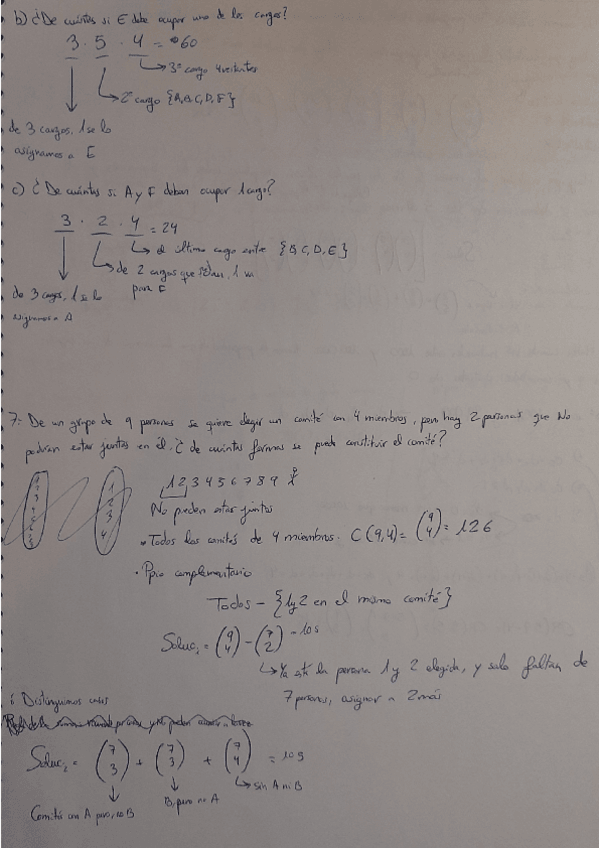 b) ¿De cuántos si E debe ocupar uno de los cargos?
3 · 5 · 4 = 60
3º cargo 4 restantes
2º cargo {A,B,C,D,F}
de 3 cargos, 1 se lo
asignamos a E
c) ¿De cuántos si A y F deban ocupar 1 cargo?
3 · 2 · 4 = 24
el último cargo entre {B,C,D,E}
de 2 cargos que, 1
para F
de 3 cargos, 1 se lo
asignamos a A
7. De un grupo de 9 personas se quiere elegir un comité con 4 miembros, pero hay 2 personas que No
podrían estar juntas en él. ¿De cuántas formas se puede constituir el comité?
1 2 3 4 5 6 7 8 9
1
2
3
4
No pueden estar juntos
• Todos los comités de 4 miembros. C(9,4) = (9 4) = 126
• Ppio complementario
Todos - {1 y 2 en el mismo comité}
Soluc₁ = (9 4) - (7 2) = 105
Ya está la persona 1 y 2 elegida, y solo faltan de
7 personas, asignar a 2 más
Distinguimos casos
Soluc₂ = (7 3) + (7 3) + (7 4) = 105
sin A ni B
B, pero no A
Comités con A pero, no B